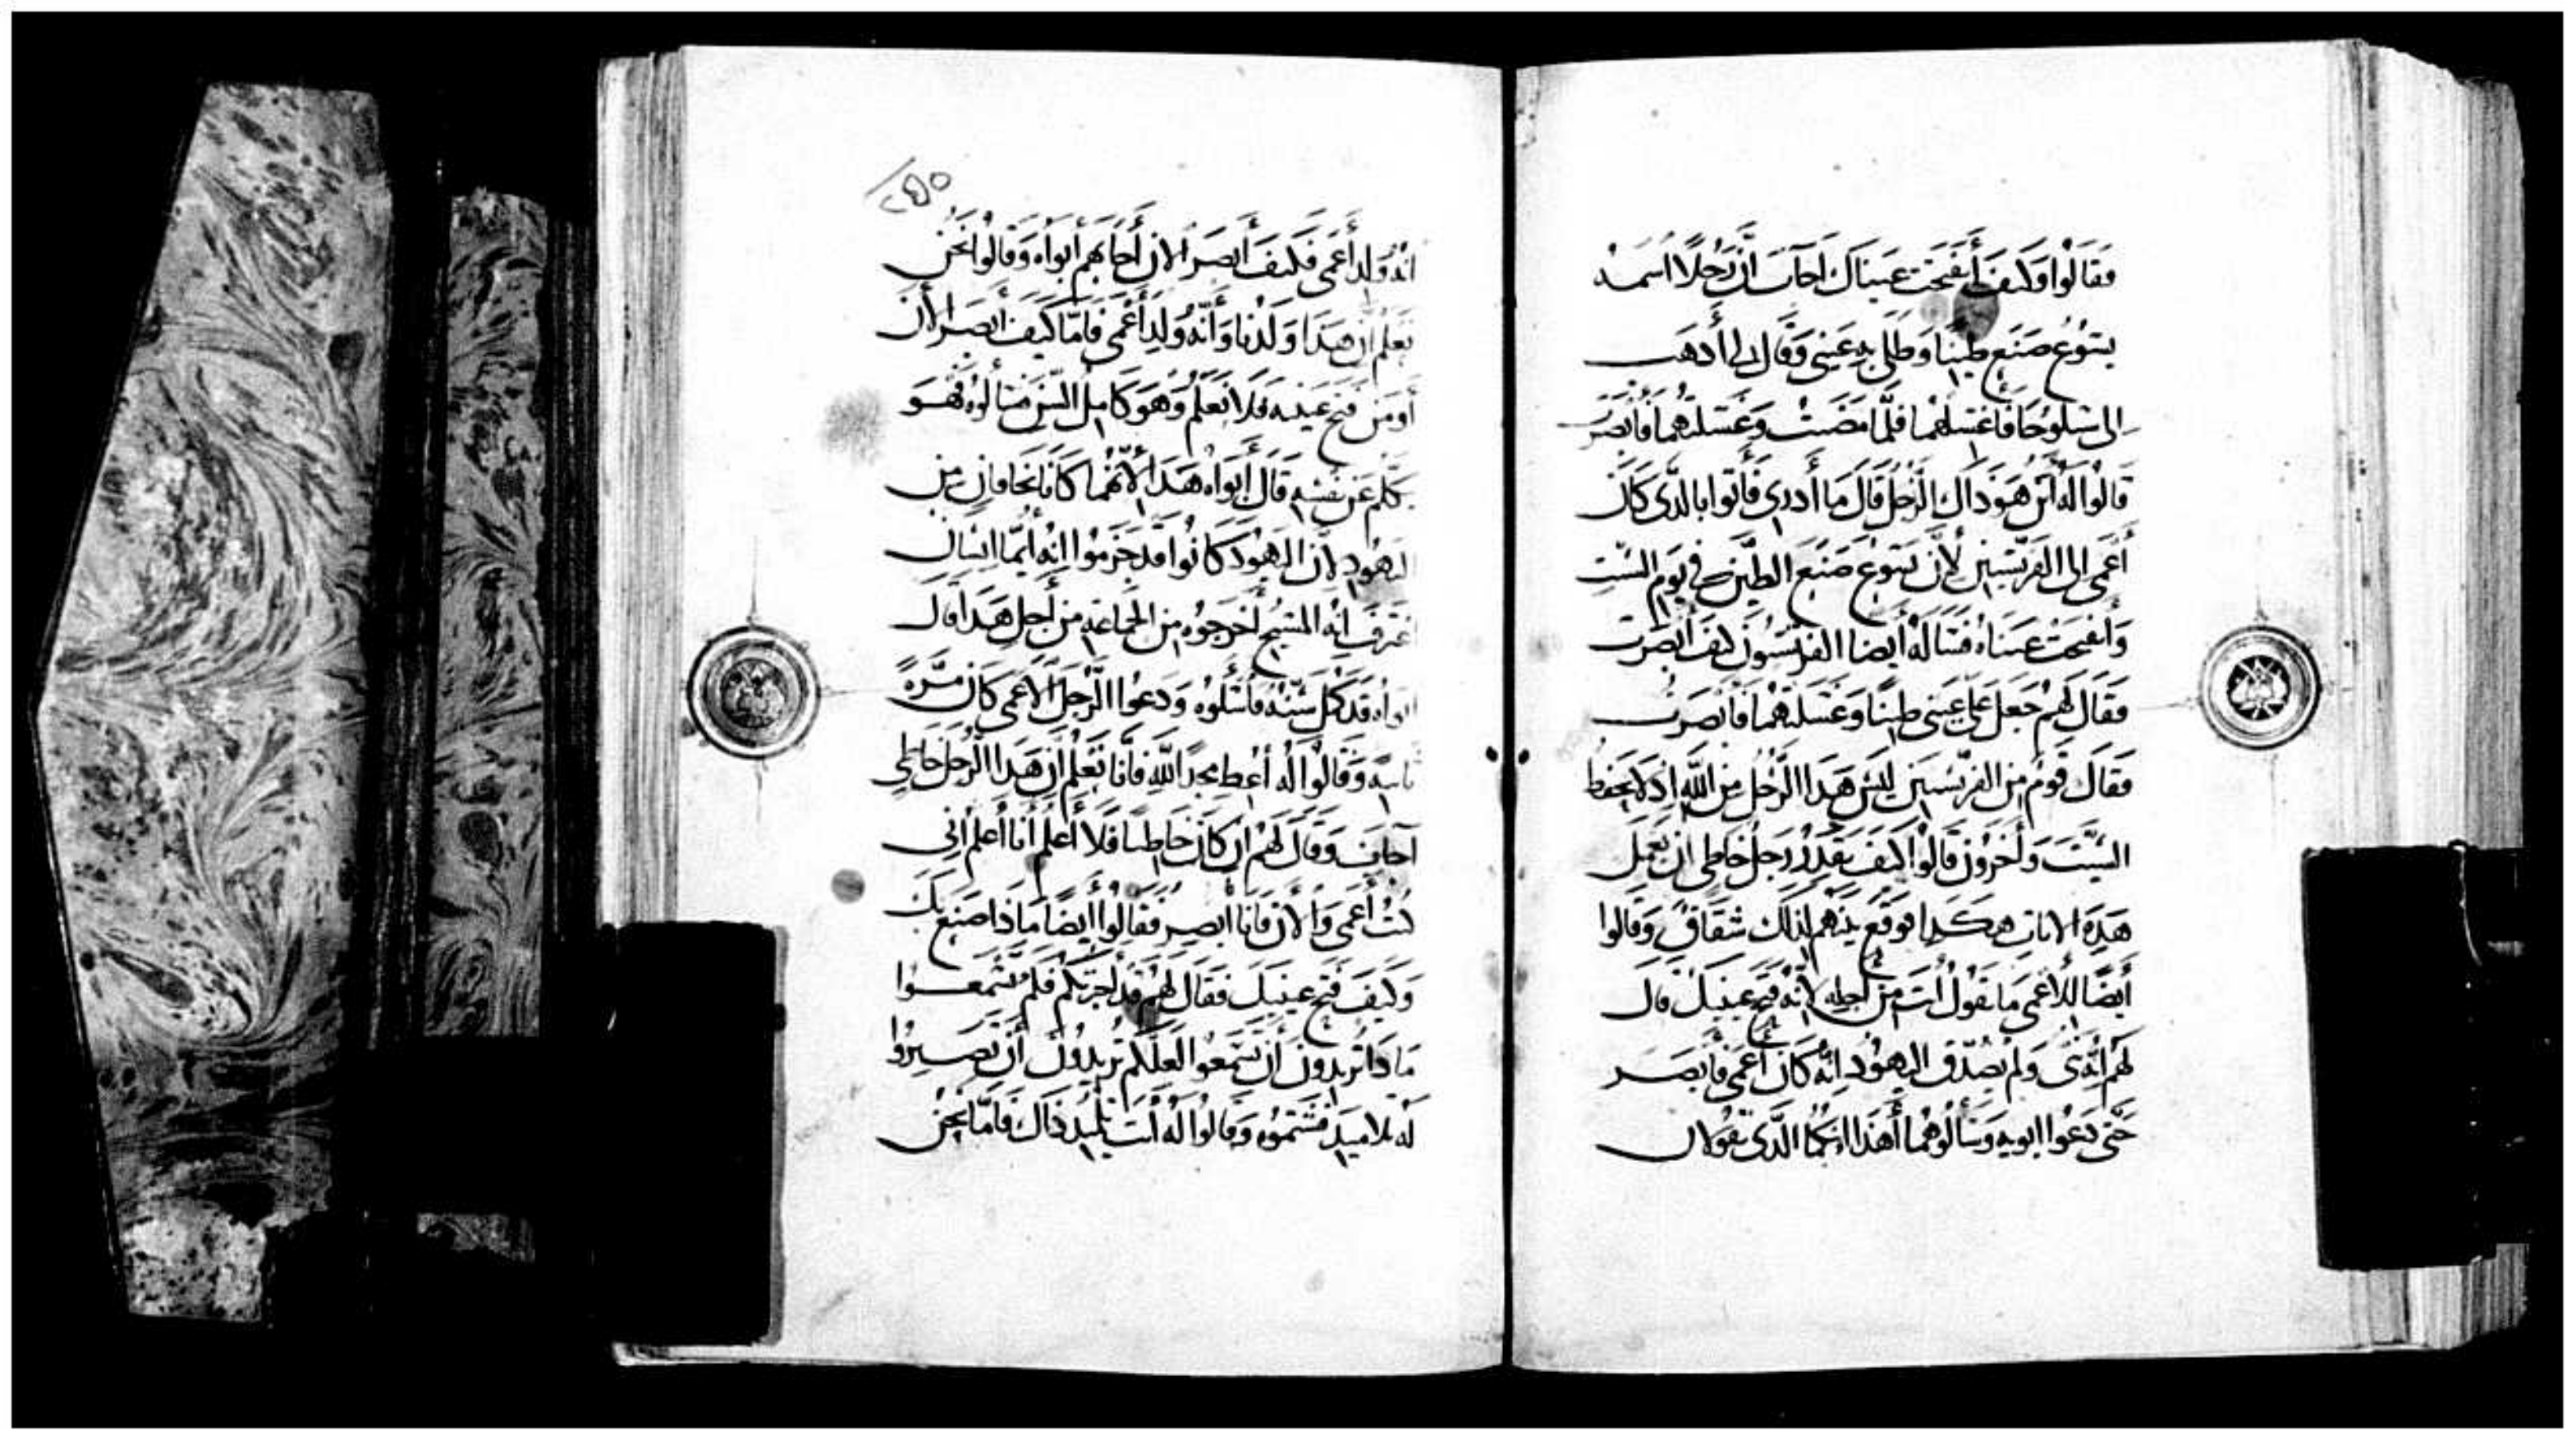 فقالوا وكيف أنفتحت عيناك أجاب ان رجلا اسمه
يسوع صنع طينا وطلى به عيني وقال لي أدهب
إلى سلوحا فاغتسلهما فلما مضيت وغسلتهما فأبصرت
قالوا له أين هو ذاك الرجل قال ما أدري فأتوا بالذي كان
أعمى الى الفريسيين لأن يسوع صنع الطين في يوم السبت
وأنفتحت عيناه فسأله أيضا الفريسيون كيف أبصرت
فقال لهم جعل على عيني طينا وغسلتهما فأبصرت
فقال قوم من الفريسيين ليس هذا الرجل من الله إذ لا يحفظ
السبت وأخرون قالوا كيف يقدر رجل خاطي ان يعمل
هذه الايات هكدا فوقع بينهم لذلك شقاق وقالوا
أيضا للأعمى ما تقول أنت من أجله لأنه فتح عينيك قال
لهم أنه نبي ولم يصدق اليهود انه كان أعمى فأبصر
حتى دعوا ابويه وسألوهما أهذا ابنكما الذي تقولان
٢٤٥
انه ولد أعمى فكيف أبصر الان أجابهم أبواه وقالوا نحن
نعلم ان هذا ولدنا وأنه ولد أعمى فاما كيف ابصر الأن
أو من فتح عينيه فلا نعلم وهو كامل السن سألوه فهو
يكلم عن نفسه قال أبواه هذا لأنهما كانا يخافان من
اليهود لأن اليهود كانوا قد جزموا انه أيما انسان
اعترف انه المسيح أخرجوه من الجماعة من أجل هذا قال
ابواه قد كمل سنه فأسئلوه ودعوا الرجل الاعمى كان مرة
ثانية وقالوا له أعط مجد الله فانا نعلم ان هذا الرجل خاطي
أجاب وقال لهم ان كان خاطيا فلا أعلم أنا أعلم اني
كنت أعمى والأن فانا أبصر فقالوا أيضا ماذا صنع بك
وكيف فتح عينيك فقال لهم قد أخبرتكم فلم تسمعوا
ماذا تريدون أن تسمعوا لعلكم تريدون أن تصيروا
له تلاميد فشتموه وقالوا له أنت تلميذ ذاك فاما نحن